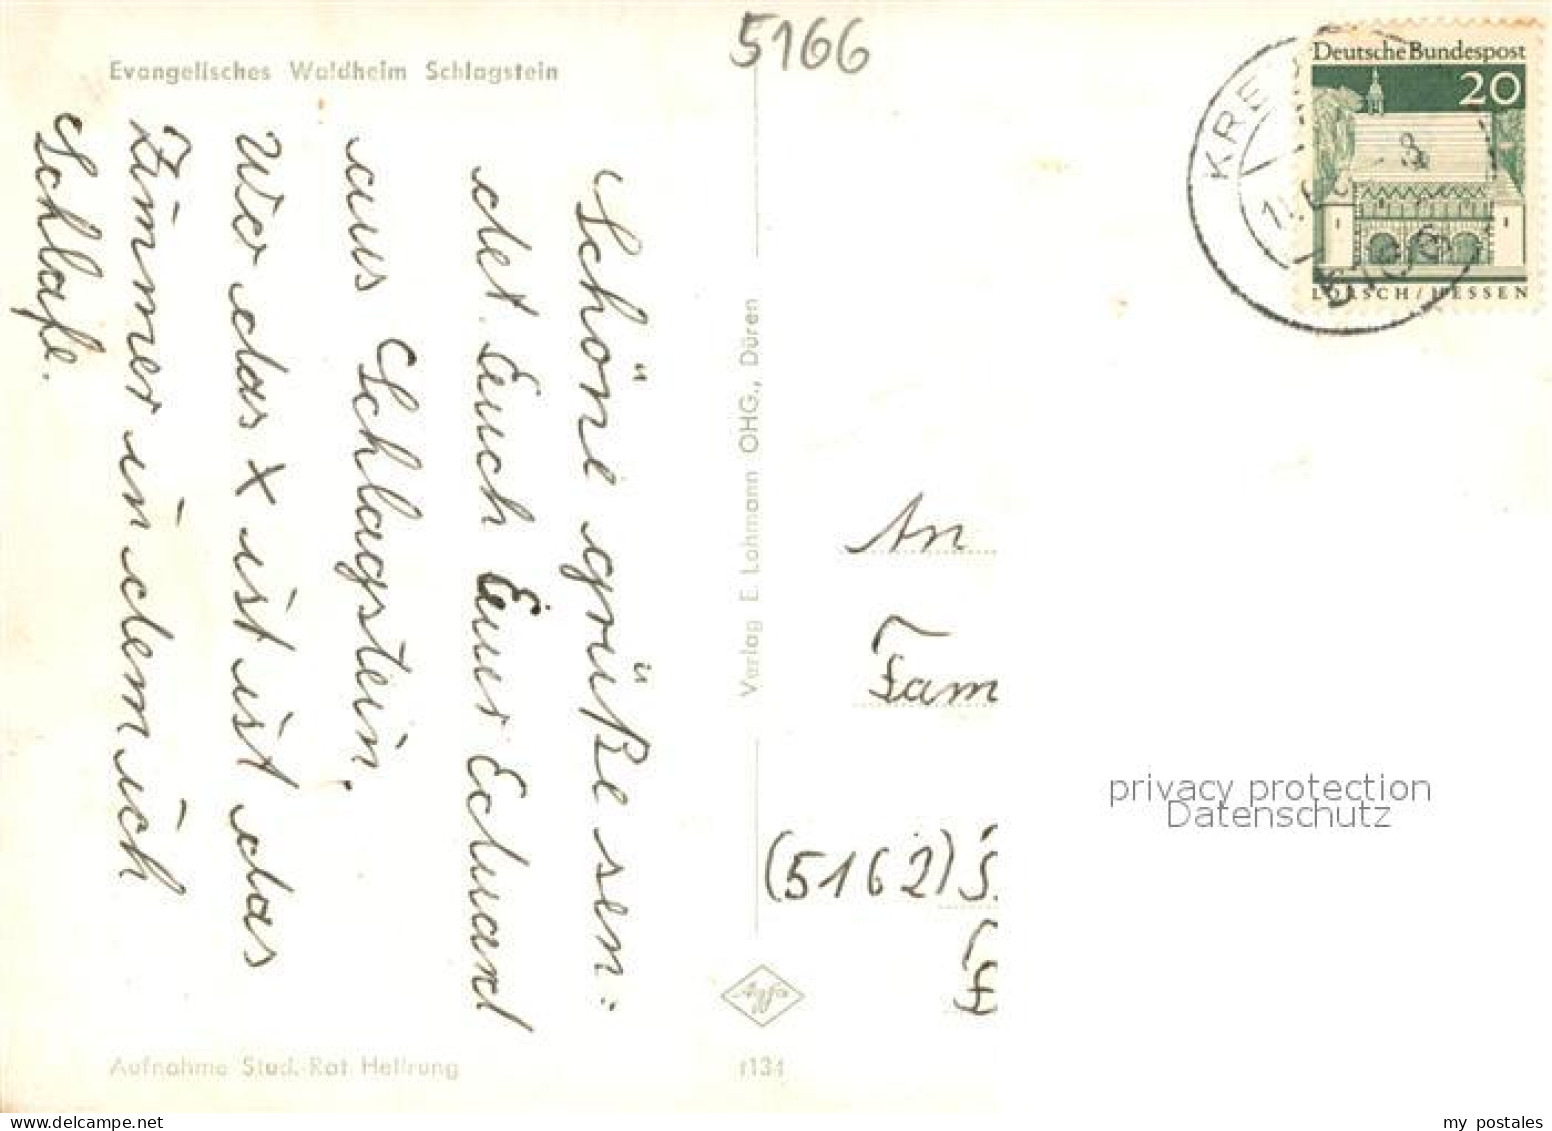 5166
Evangelisches Waldheim Schlagstein
Schöne grüße sen:
det Euch Euer Eduard
aus Schlagstein.
Wo das X ist ist das
Zimmer in dem ich
Schlafe.
Verlag E. Lohmann OHG., Düren
Agfa
Aufnahme Stud.-Rat Hellrung
r134
Deutsche Bundespost
20
LORSCH/HESSEN
KRE
An
Fam
(5162)
privacy protection
Datenschutz
my postales